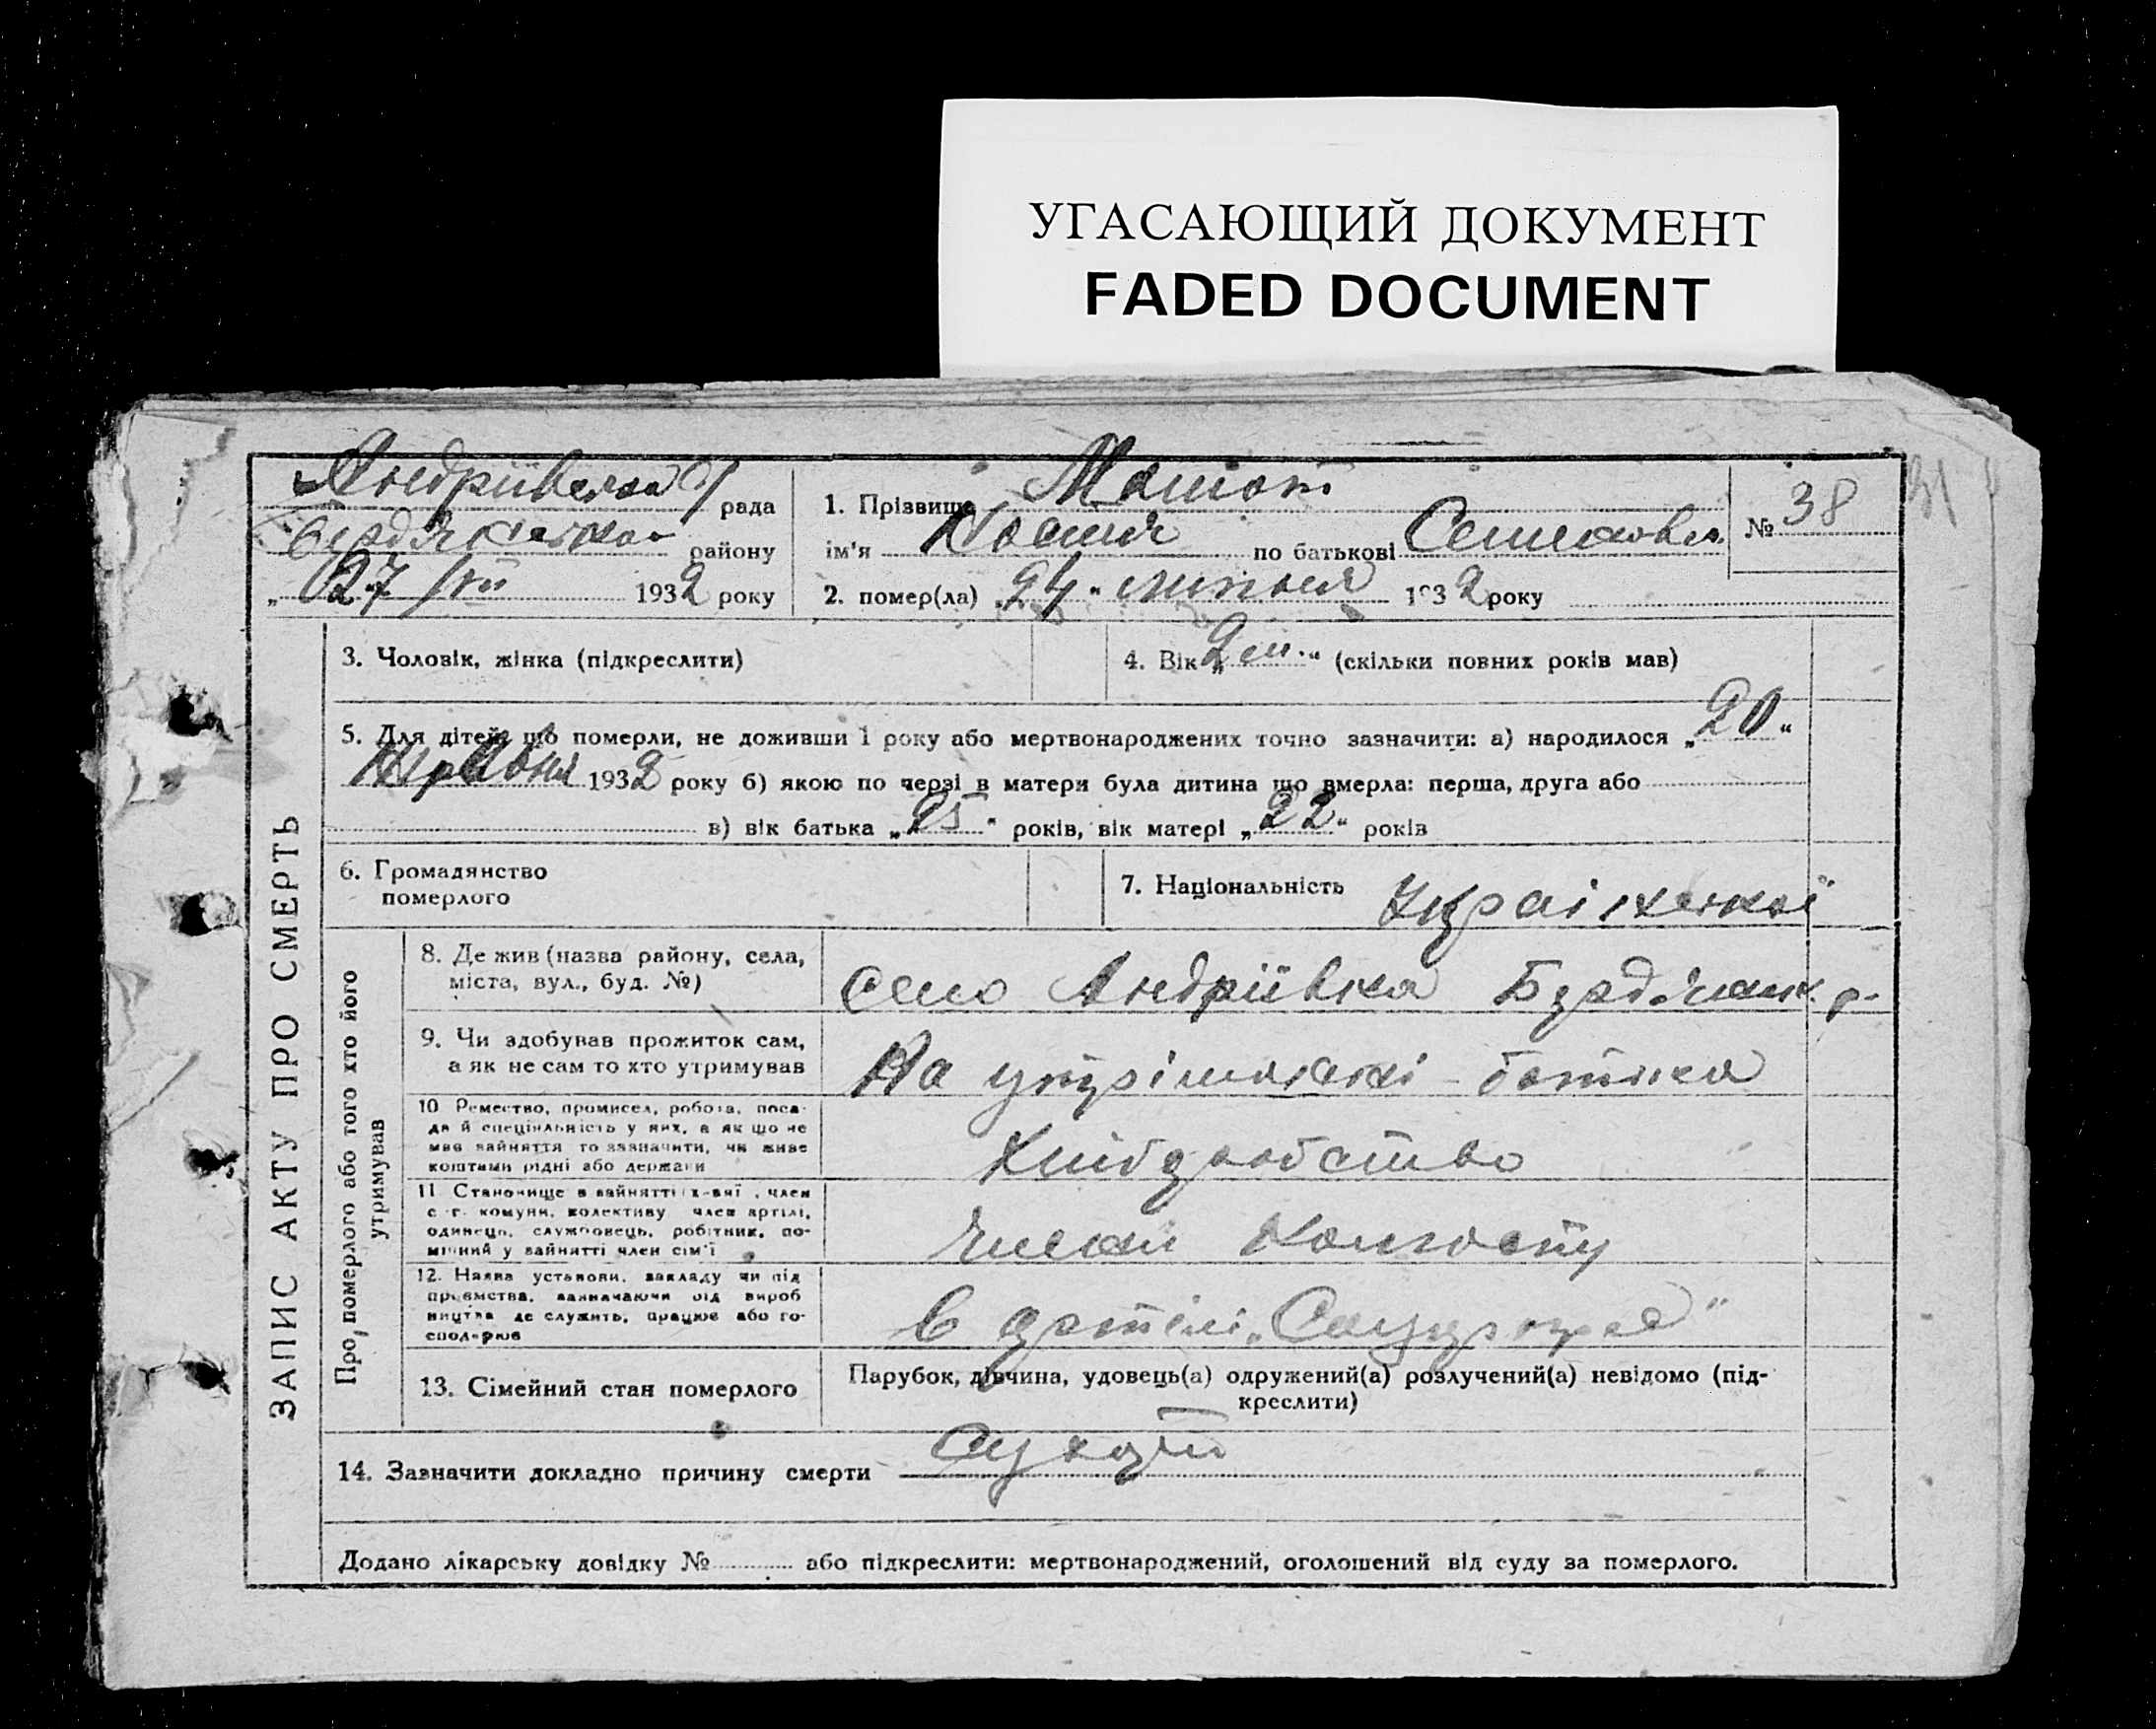 УГАСАЮЩИЙ ДОКУМЕНТ
FADED DOCUMENT
Андріївська с/рада
Бердянського району
„27 VII 1932 року
1. Прізвище
ім'я по батькові
№ 38
31
2. помер(ла) „24" липня 1932 року
ЗАПИС АКТУ ПРО СМЕРТЬ
3. Чоловік, жінка (підкреслити)
4. Вік „2 м." (скільки повних років мав)
5. Для дітей, що померли, не доживши 1 року або мертвонароджених точно зазначити: а) народилося „20"
1932 року б) якою по черзі в матери була дитина що вмерла: перша, друга або
в) вік батька „25" років, вік матері „22" років
6. Громадянство
померлого
7. Національність
Про померлого або того хто його
утримував
8. Де жив (назва району, села,
міста, вул., буд. №)
село Андріївка Бердянськ. р.
9. Чи здобував прожиток сам,
а як не сам то хто утримував
На утріманні батька
10 Ремество, промисел, робота, поса-
да й спеціяльність у них, а як що не
мав зайняття то зазначити, чи живе
коштами рідні або держави
Хліборобство
11 Становище в зайнятті, член
с.-г. комуни, колективу член артілі,
одинець, службовець, робітник, по-
мічний у зайнятті член сім'ї
член Колгоспу
12. Назва установи, закладу чи під
приємства, зазначаючи від вироб
ництва де служить, працює або го-
сподарює
в артілі
13. Сімейний стан померлого
Парубок, дівчина, удовець(а) одружений(а) розлучений(а) невідомо (під-
креслити)
14. Зазначити докладно причину смерти
Додано лікарську довідку № або підкреслити: мертвонароджений, оголошений від суду за померлого.